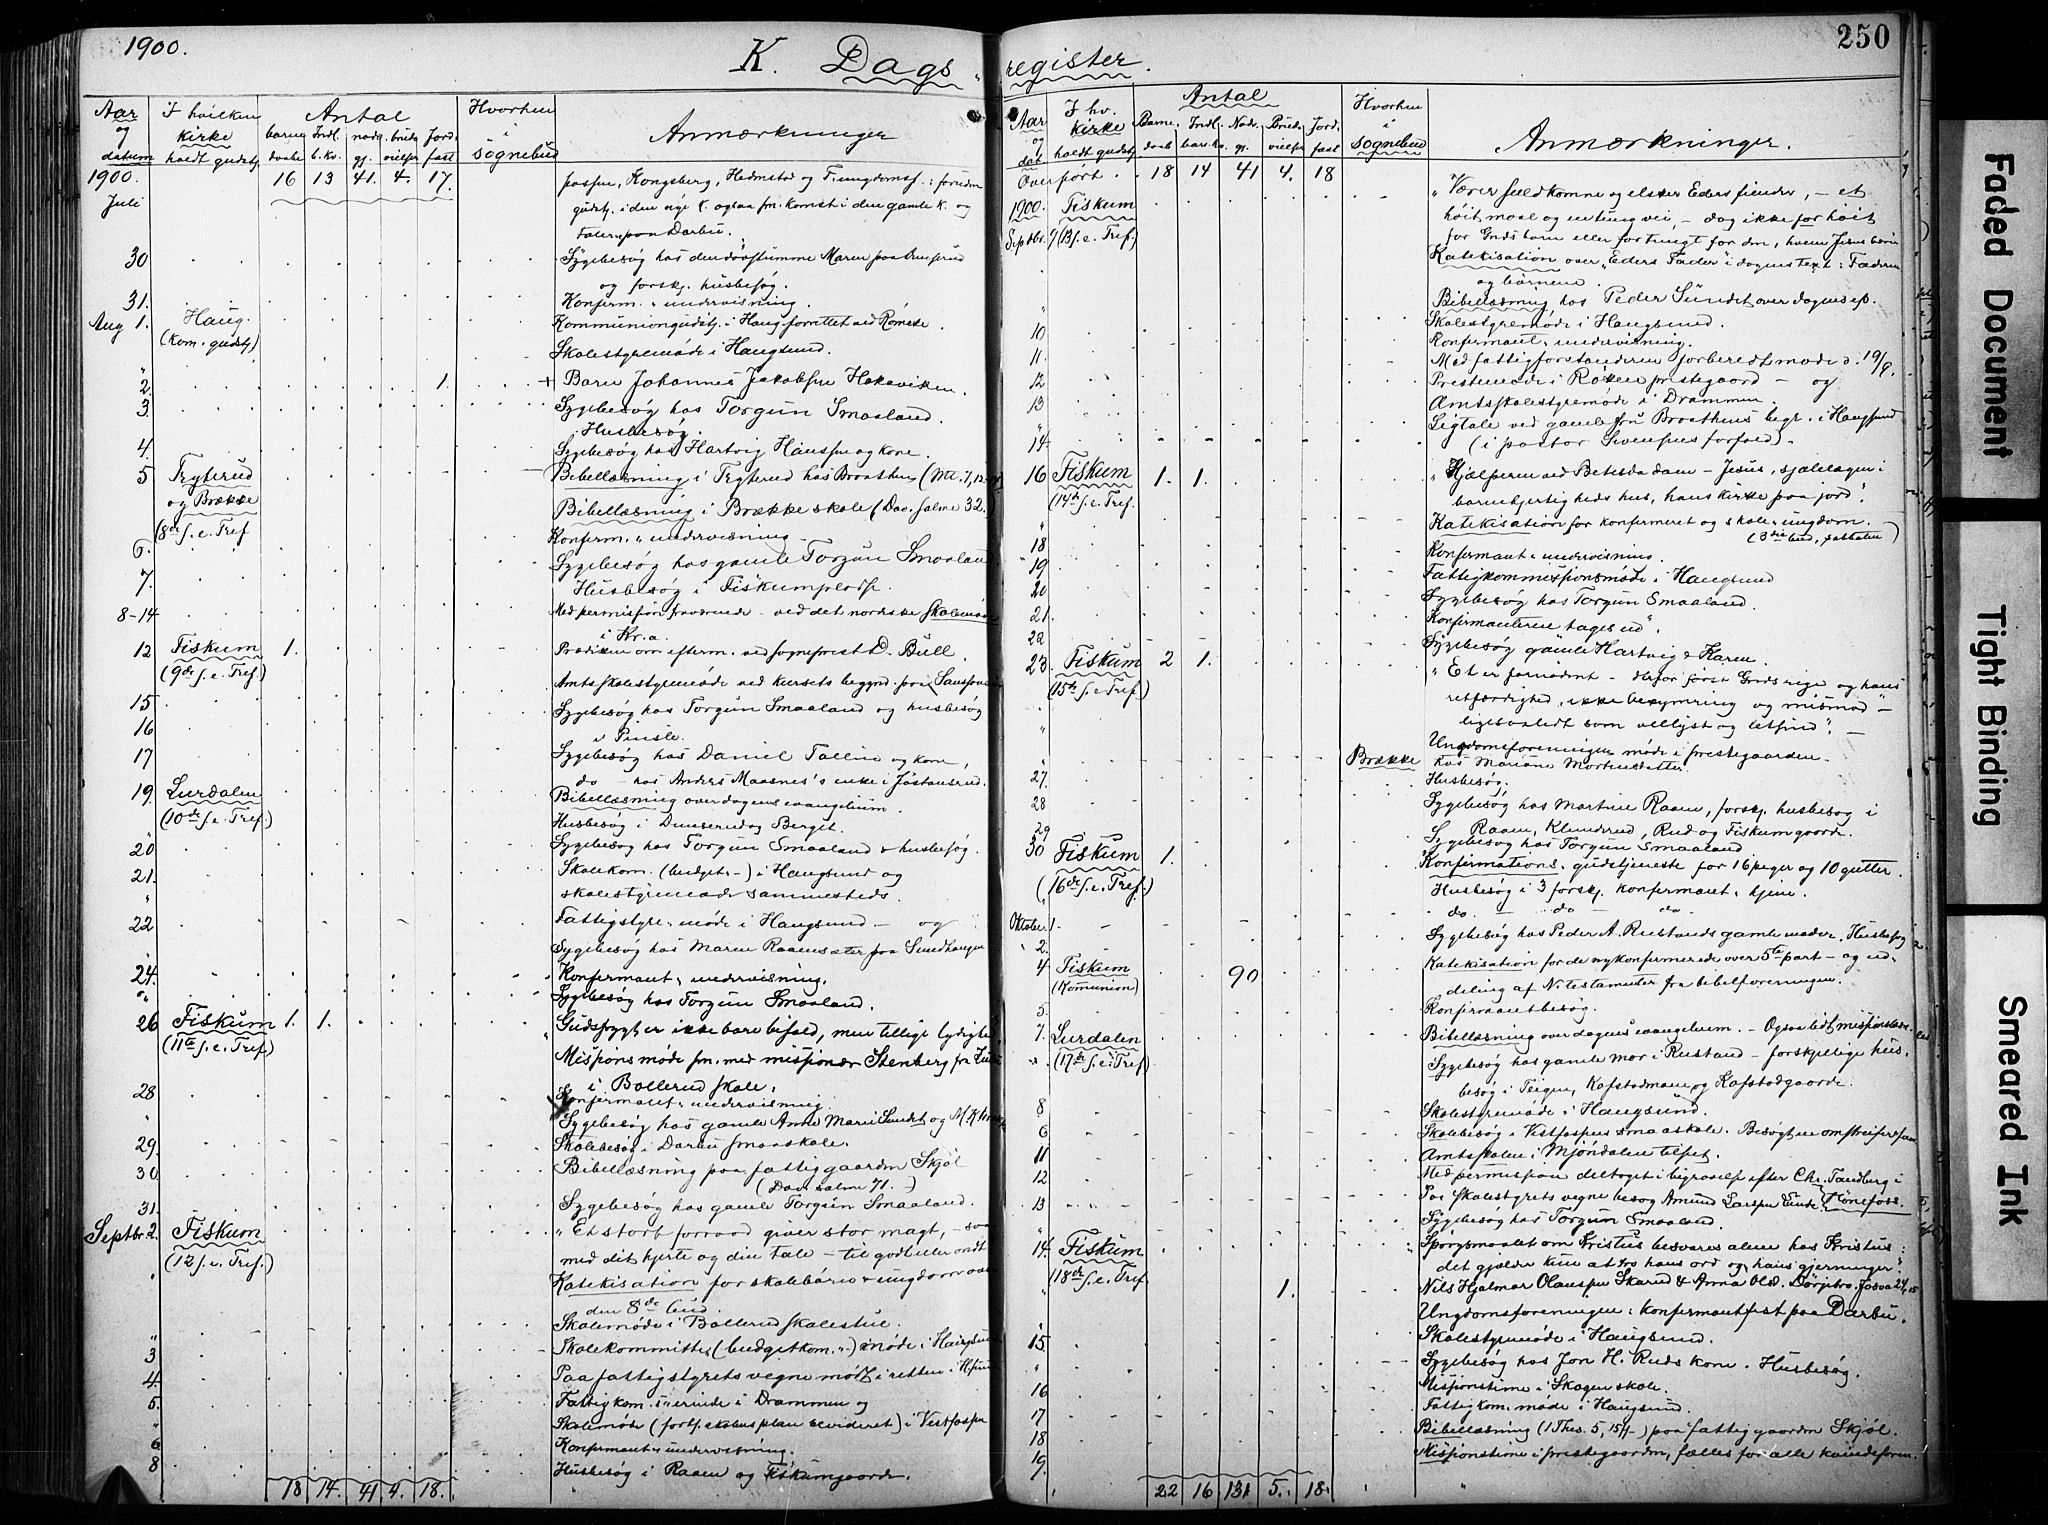 1900.
K. Dagsregister.
250
Aar og datum
I hvilken kirke holdt gudstj.
Antal
barne daabe
Indl. b. kv.
nadv. gj.
brude vielser
Jord. fæst
Hvorhen i sognebud
Anmærkninger
1900. 16 13 41. 4. 17. Kongsberg, Hedmstad og F. ungdomsf.
Juli gudstj. i den nye K. ogsaa i den gamle K. og
taler paa Darbu.
30 Sygebesøg hos den døvstumme Maren paa
og forskj. husbesøg.
31. Konfirm. undervisning.
Aug 1. Haug. Kommuniongudstj. i Haug forrettet ved
(Kom. gudstj.)
" Skolestyremøde i Haugsund.
2. 1. + Barn Johannes Jakobsen Hakaviken.
3. Sygebesøg hos Torgun Smaaland.
Husbesøg.
4. Sygebesøg hos Hartvig Hansen og kone.
5 Trgterud Bibellæsning i Trgterud hos Braathen (Mt. 7,
og Brække
(8de s. e. Tref Bibellæsning i Brække skole (Dav. salme 32.)
6. Konfirm. undervisning
7. Sygebesøg hos gamle Torgun Smaaland
Husbesøg i
8-14 Med permission fraværende - ved det nordiske skolemøde
i Kr.a.
12 Fiskum 1. Prædiken om efterm. ved sogneprest D. Bull.
(9de s. e. Tref.)
Amtsskolestyremøde ved kursets begynd. paa
15 Sygebesøg hos Torgun Smaaland og husbesøg
16 i
17 Sygebesøg hos Daniel og kone,
do - hos Anders Maasnes's enke i
19. Lurdalen Bibellæsning over dagens evangelium.
(10de s. e. Tref.)
" Husbesøg i Dunserud og Berget.
20 Sygebesøg hos Torgun Smaaland & husbesøg.
21. Skolekom. (budget-) i Haugsund og
" skolestyremøde sammesteds.
22 Fattigstyre-møde i Haugsund - og
Sygebesøg hos Maren paa
24. Konfirmant-undervisning.
" Sygebesøg hos Torgun Smaaland.
26 Fiskum 1. 1. Gudsfrygt er ikke bare bifald, men tillige lydighed.
(11te s. e. Tref)
Missionsmøde med missionær Stenberg fra
i Bollerud skole.
28 Konfirmant-undervisning.
" Sygebesøg hos gamle Anne Marie Sundet og
29. Skolebesøg i Darbu smaaskole.
30 Bibellæsning paa fattiggaarden Skjøl
(Dav. salme 71.)
31. Sygebesøg hos gamle Torgun Smaaland.
Septbr. 2. Fiskum "Et stort forraad giver stor magt,
(12 s. e. Tref.) med dit hjerte og din tale - til godt eller ondt
" Katekisation for skolebørn & ungdom
den 8de bud.
Skolemøde i Bollerud skolestue.
" Skolekommitte (budgetkom.-) møde i Haugsund
3
4. Paa fattigstyrets vegne mødt i retten i H.sund
5. Fattigkom.s ærinde i Drammen og
" Skolemøde (fors. skolens plan revideret) i Vestfossen
6 Konfirmant-undervisning.
8 Husbesøg i Raaen og Fiskumgaarde.
18 14. 41 4. 18.
Aar og dat.
I hv. kirke holdt gudstj.
Antal
Barne daab
Indl. bar. kv.
Nadv. gj.
Brude vielser
Jord. fæst
Hvorhen i sognebud
Anmærkninger.
Overført. 18 14 41 4. 18
1900. Fiskum "Værer fuldkomne og elsker Eders fiender, - et
Septbr. 9 (13 s. e. Tref.) høit maal og en tung vei, - dog ikke for høit
for Guds barn eller for tungt for den, hvem Jesus bær
" Katekisation over "Eders Fader" i dagens text: Faderen
og børnene.
" Bibellæsning hos Peder Sundet over dagens ep.
10 Skolestyremøde i Haugsund.
11. Konfirmant-undervisning.
Med fattigforstanderen forberedt møde d. 19/9.
12 Prestemøde i Røken prestegaard - og
13 Amtsskolestyremøde i Drammen.
14 Ligtale ved gamle fru Braathens begr. i Haugsund
(i pastor Svensens forfald).
16 Fiskum 1. 1. "Hjælpen ved Betesda dam - Jesus, sjælelægen i
(14de s. e. Tref. barmhjertigheds hus, hans kirke paa jord".
" Katekisation for konfirmeret og skole-ungdom.
(3die bud, sabbaten)
18 Konfirmant-undervisning.
19 Fattigkommissionsmøde i Haugsund
20 Sygebesøg hos Torgun Smaaland.
21. Konfirmanterne "tages ud".
22 Sygebesøg gamle Hartvig & Karen.
23 Fiskum 2 1. "Et er fornødent - derfor først Guds rige og hans
(15de s. e. Tref.) retfærdighed, ikke bekymring og mismod -
ligesaalidt som vellyst og letsind". -
" Ungdomsforeningens møde i prestegaarden.
Brække hos Mariane Mortensdatter
27. Husbesøg.
28 Sygebesøg hos Martine Raaen, forskj. husbesøg i
Raaen, Klunderud, Rud og Fiskumgaarde.
29 Sygebesøg hos Torgun Smaaland
30 Fiskum 1. Konfirmations-gudstjeneste for 16 piger og 10 gutter.
(16de s. e. Tref.)
" Husbesøg i 3 forskj. konfirmant-hjem.
Oktober 1 do. - do - do
2. Sygebesøg hos Peder A. Rustands gamle moder. Husbesøg
4 Fiskum 90 Katekisation for de nykonfirmerede over 5te part - og ud-
(Kommunion) deling af N. testamenter fra bibelforeningen.
5. Konfirmantbesøg.
7. Lurdalen Bibellæsning over dagens evangelium. - Ogsaa lidt
(17de s. e. Tref) Sygebesøg hos gamle mor i Rustand - forskjellige hus-
besøg i Teigen, Kafstadmoen og Kafstadgaarde.
8 Skolestyremøde i Haugsund.
6 Skolebesøg i Vestfossens smaaskole. Besøgt en omstreiferfam
11 Amtsskolen i Mjøndalen tilset.
12 Med permission deltaget i begravelse efter Chr. Tandberg i
Hønefoss.
13 Paa skolestyrets vegne besøg Amund Larsen
" Sygebesøg hos Torgun Smaaland.
14. Fiskum "Spørgsmaalet om Kristus besvares alene hos Kristus:
(18de s. e. Tref. det gjælder kun at tro hans ord og hans gjerninger".
" 1. Nils Hjalmar Olaussen Skarud & Anna Olsd. Dørjebro. Josva 24, 15
Ungdomsforeningen: konfirmantfest paa Darbu.
15. Skolestyremøde i Haugsund.
" Sygebesøg hos Jon H. Ruds kone. Husbesøg.
16 Missionstime i Skogen skole.
17 Fattigkom. møde i Haugsund.
18 Bibellæsning (1 Thes. 5, 15 f-) paa fattiggaarden Skjøl.
19. Missionstime i prestegaarden, fælles for alle kvindeforen.
22 16 131 5. 18.
Faded Document
Tight Binding
Smeared Ink